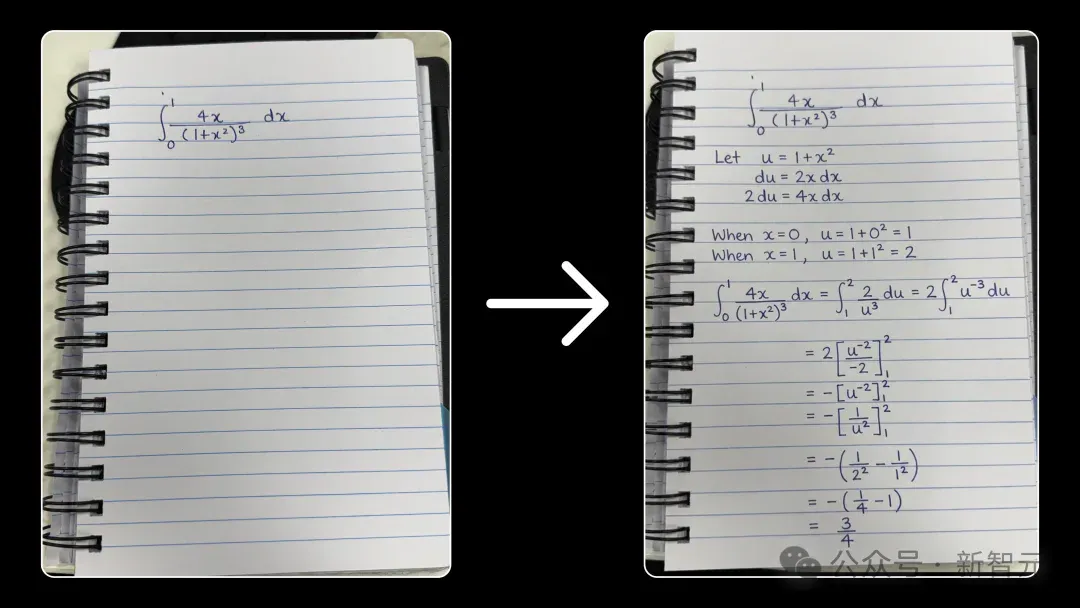 ∫₀¹ 4x/(1+x²)³ dx
∫₀¹ 4x/(1+x²)³ dx
Let u = 1+x²
du = 2x dx
2 du = 4x dx
When x=0, u = 1+0² = 1
When x=1, u = 1+1² = 2
∫₀¹ 4x/(1+x²)³ dx = ∫₁² 2/u³ du = 2∫₁² u⁻³ du
= 2[u⁻²/-2]₁²
= -[u⁻²]₁²
= -[1/u²]₁²
= -(1/2² - 1/1²)
= -(1/4 - 1)
= 3/4
公众号·新智元